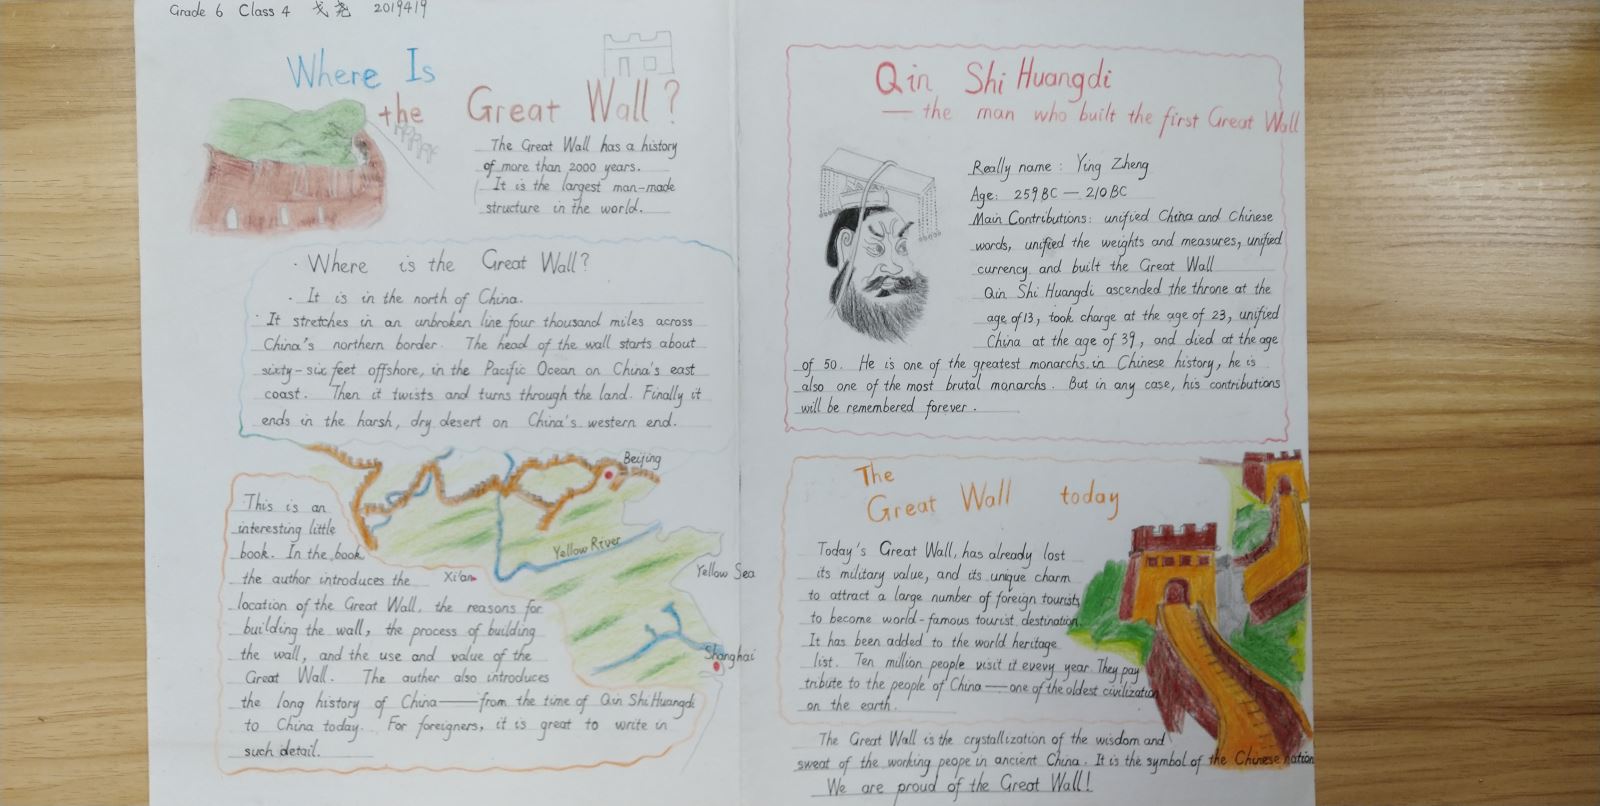 Grade 6 Class 4 戈尧 2019419
Where Is
the Great Wall?
The Great Wall has a history
of more than 2000 years.
It is the largest man-made
structure in the world.
Where is the Great Wall?
It is in the north of China.
It stretches in an unbroken line four thousand miles across
China's northern border. The head of the wall starts about
sixty-six feet offshore, in the Pacific Ocean on China's east
coast. Then it twists and turns through the land. Finally it
ends in the harsh, dry desert on China's western end.
Beijing
Yellow River
Xi'an
Yellow Sea
Shanghai
This is an
interesting little
book. In the book
the author introduces the
location of the Great Wall, the reasons for
building the wall, the process of building
the wall, and the use and value of the
Great Wall. The auther also introduces
the long history of China——from the time of Qin Shi Huangdi
to China today. For foreigners, it is great to write in
such detail.
Qin Shi Huangdi
—— the man who built the first Great Wall
Really name: Ying Zheng
Age: 259BC — 210BC
Main Contributions: unified China and Chinese
words, unified the weights and measures, unified
currency and built the Great Wall
Qin Shi Huangdi ascended the throne at the
age of 13, took charge at the age of 23, unified
China at the age of 39, and died at the age
of 50. He is one of the greatest monarchs in Chinese history, he is
also one of the most brutal monarchs. But in any case, his contributions
will be remembered forever.
The
Great Wall today
Today's Great Wall, has already lost
its military value, and its unique charm
to attract a large number of foreign tourists
to become world-famous tourist destination.
It has been added to the world heritage
list. Ten million people visit it evevy year. They pay
tribute to the people of China——one of the oldest civilization
on the earth.
The Great Wall is the crystallization of the wisdom and
sweat of the working peope in ancient China. It is the symbol of the Chinese nation
We are proud of the Great Wall!